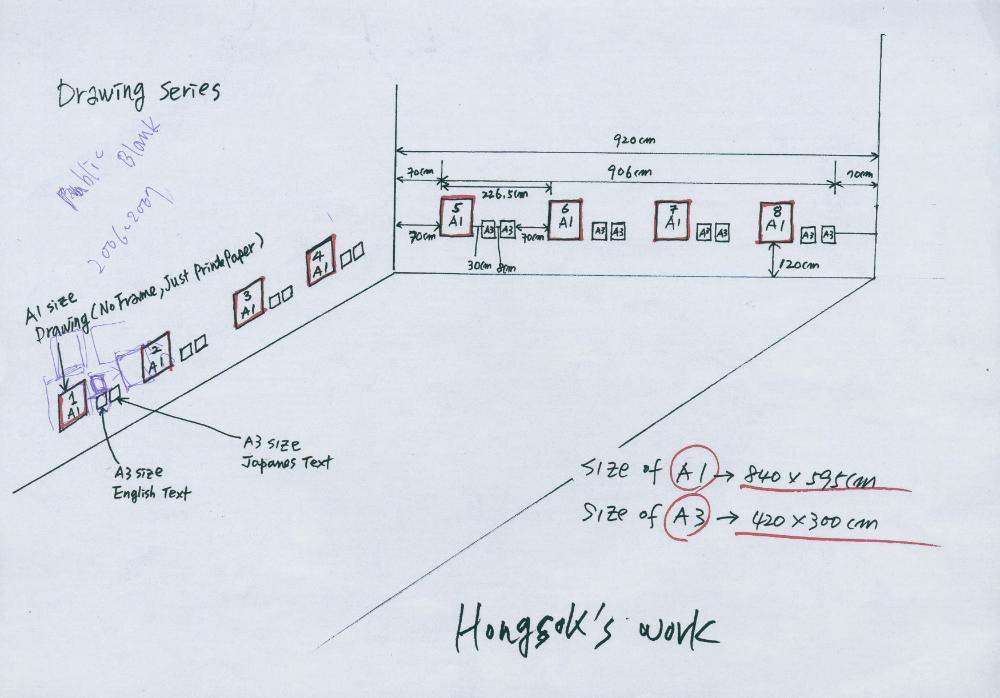 Drawing Series
Public Blank
2006-2007
A1 size
Drawing (No Frame, Just Print Paper)
920cm
70cm
906cm
70cm
226.5cm
5
A1
6
A1
7
A1
8
A1
70cm
A3
A3
70cm
A3
A3
A3
A3
A3
A3
30cm
8cm
120cm
4
A1
3
A1
2
A1
1
A1
A3 size
Japanes Text
A3 size
English Text
Size of A1 → 840 x 595cm
Size of A3 → 420 x 300cm
Hongsok's work